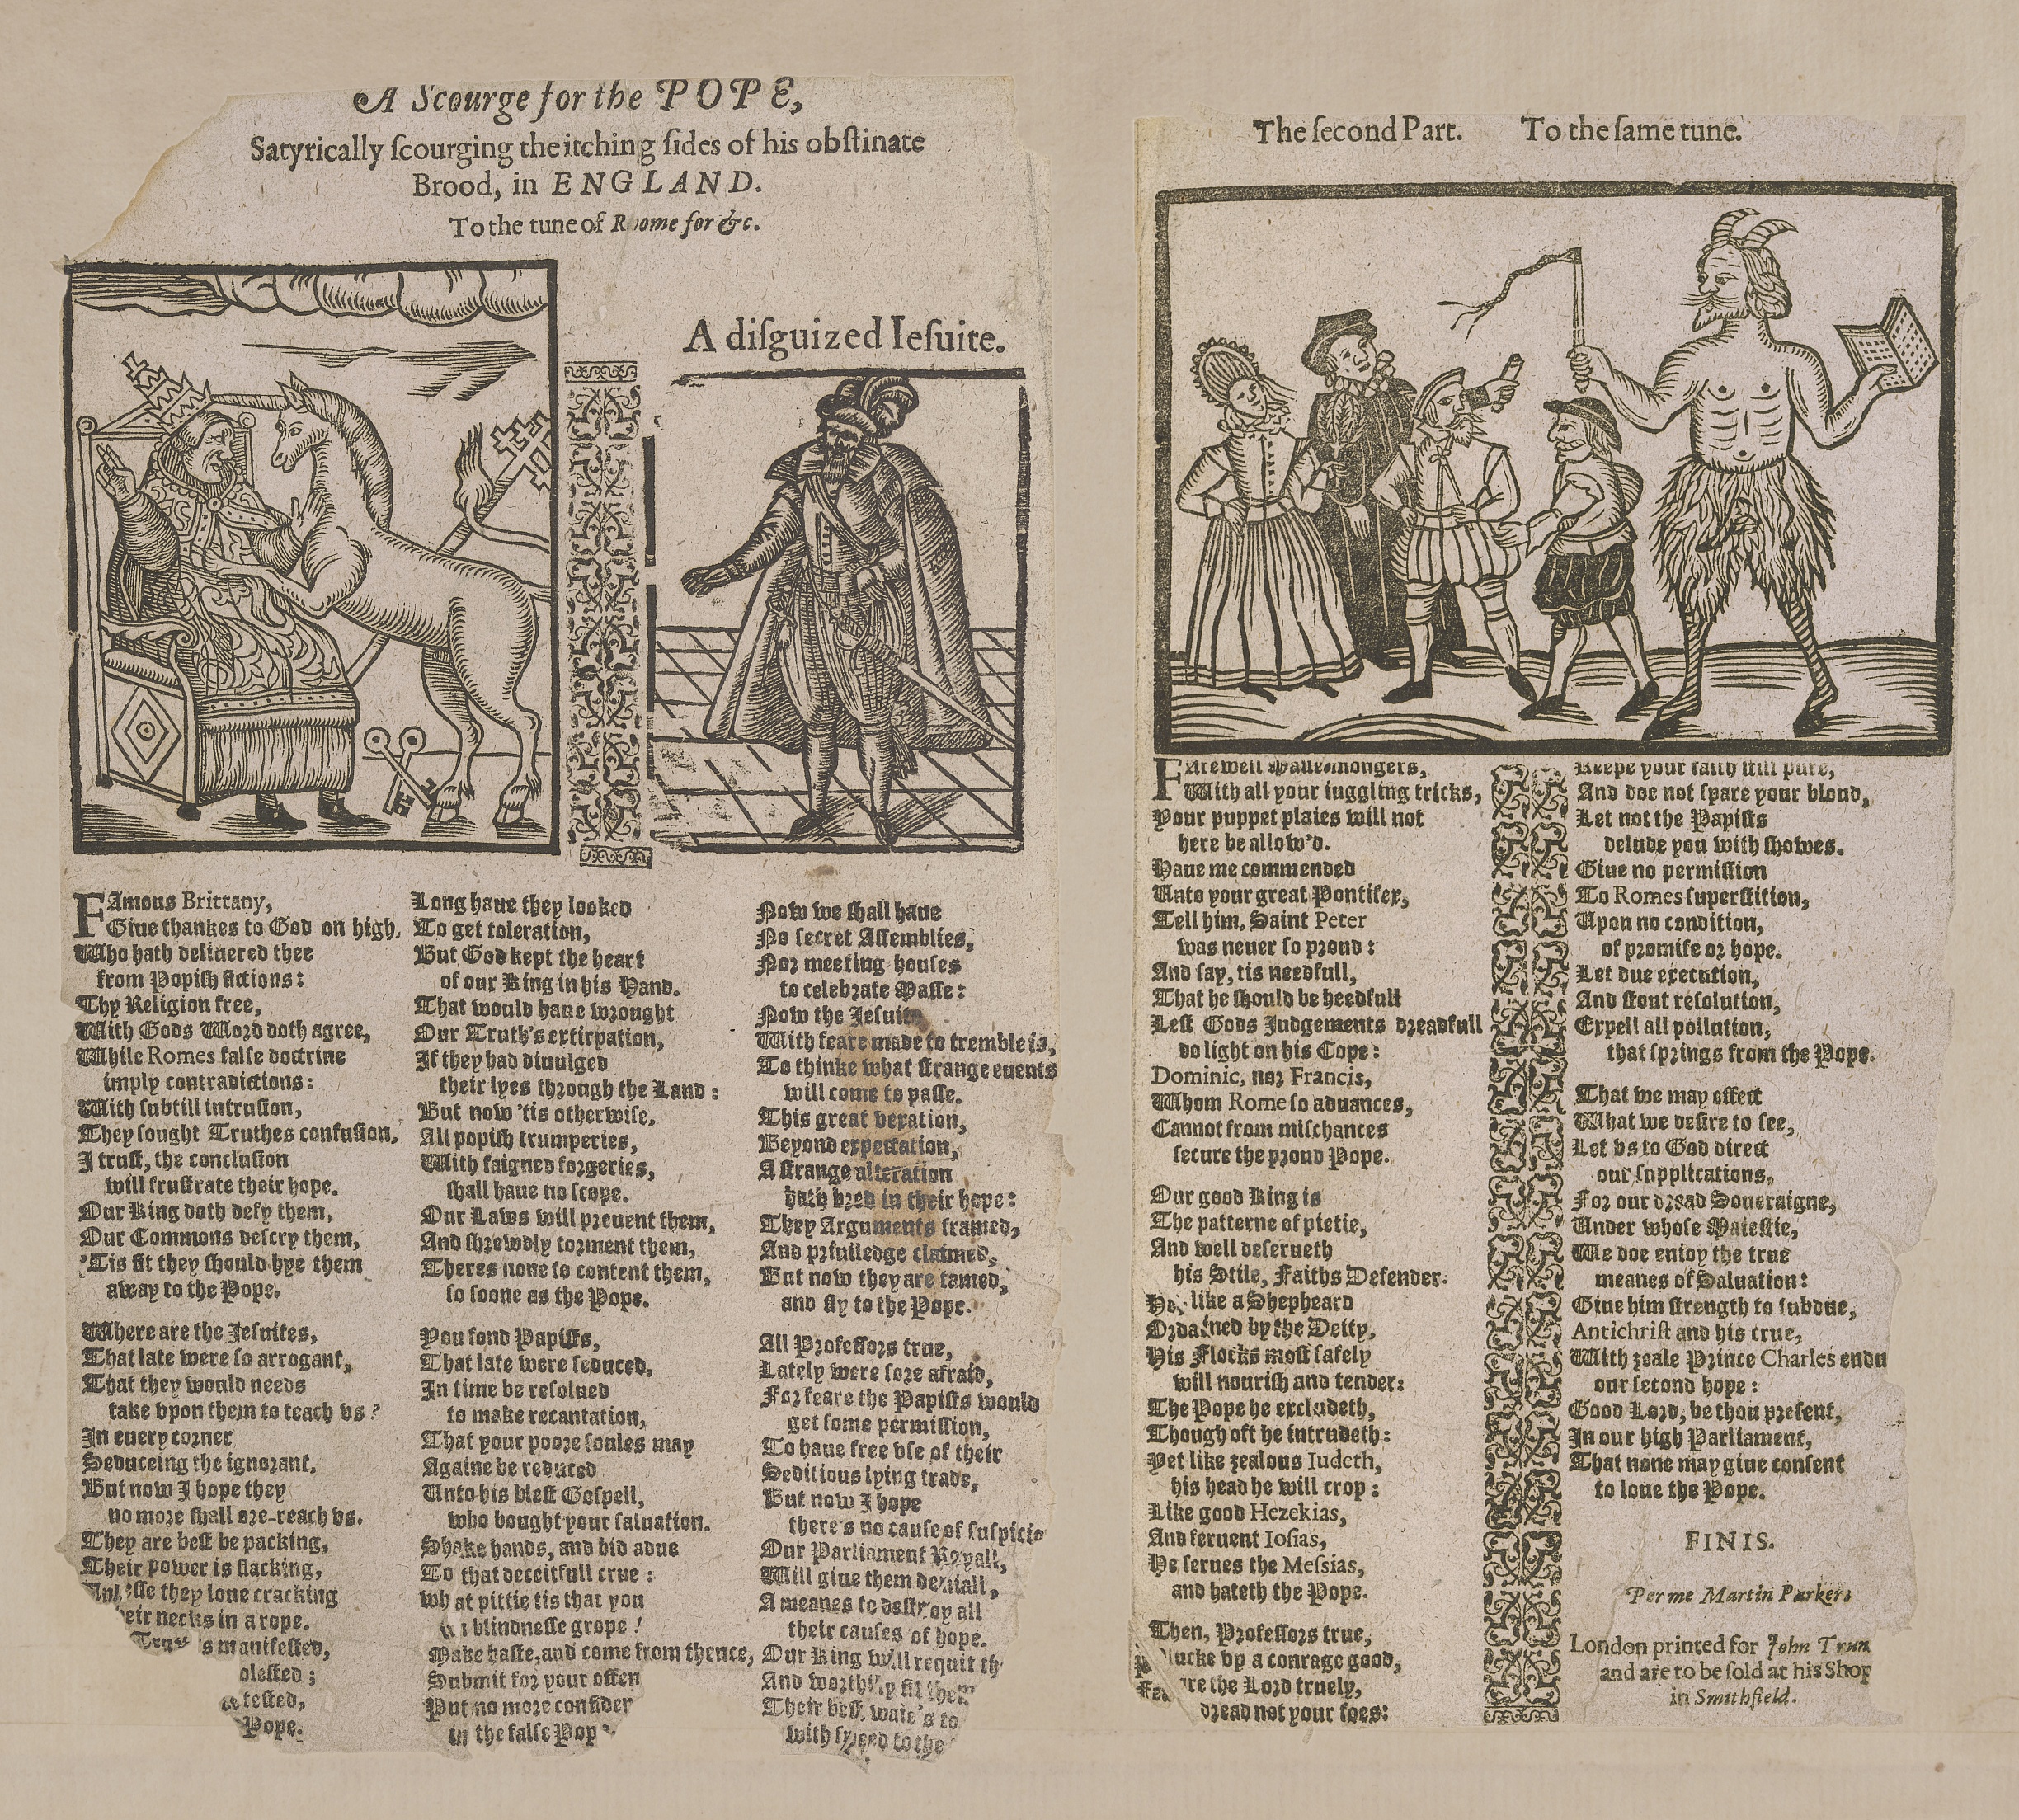 A Scourge for the POPE,
Satyrically ſcourging the itching ſides of his obſtinate
Brood, in ENGLAND.
To the tune of Roome for &c.
A diſguized Ieſuite.
FAmous Brittany,
Giue thankes to God on high,
Who hath deliuered thee
from Popiſh fictions:
Thy Religion free,
With Gods Word doth agree,
While Romes falſe doctrine
imply contradictions:
With ſubtill intruſion,
They ſought Truthes confuſion,
I truſt, the concluſion
will fruſtrate their hope.
Our King doth defy them,
Our Commons deſcry them,
'Tis fit they ſhould hye them
away to the Pope.
Where are the Jeſuites,
That late were ſo arrogant,
That they would needs
take vpon them to teach vs?
In euery corner
Seduceing the ignorant,
But now I hope they
no more ſhall ore-reach vs.
They are beſt be packing,
Their power is ſlacking,
they loue cracking
necks in a rope.
manifeſted,
;
Pope.
Long haue they looked
To get toleration,
But God kept the heart
of our King in his Hand.
That would haue wrought
Our Truth's extirpation,
If they had diuulged
their lyes through the Land:
But now 'tis otherwiſe,
All popiſh trumperies,
With faigned forgeries,
ſhall haue no ſcope.
Our Laws will preuent them,
And ſhrewdly torment them,
Theres none to content them,
ſo ſoone as the Pope.
You fond Papiſts,
That late were ſeduced,
In time be reſolued
to make recantation,
That your poore ſoules may
Againe be reduced
Unto his bleſt Goſpell,
who bought your ſaluation.
Shake hands, and bid adue
To that deceitfull crue:
what pittie tis that you
blindneſſe grope!
Make haſte, and come from thence,
Submit for your offen
Put no more confiden
in the falſe Pop
Now we ſhall haue
No ſecret Aſſemblies,
Nor meeting houſes
to celebrate Maſſe:
Now the Jeſuite,
With feare made to tremble is,
To thinke what ſtrange euents
will come to paſſe.
This great vexation,
Beyond expectation,
A ſtrange alteration
hath bred in their hope:
They Arguments framed,
And priuiledge claimed,
But now they are tamed,
and fly to the Pope.
All Profeſſors true,
Lately were ſore afraid,
For feare the Papiſts would
get ſome permiſſion,
To haue free vſe of their
Seditious lying trade,
But now I hope
there's no cauſe of ſuſpicio
Our Parliament Royall,
Will giue them deniall,
A meanes to deſtroy all
their cauſes of hope.
Our King will requit th
And worthily fit them
Their beſt waie's to
with ſpeed to the
The ſecond Part. To the ſame tune.
FArewell Maſſe-mongers,
With all your iuggling tricks,
Your puppet plaies will not
here be allow'd.
Haue me commended
Unto your great Pontifex,
Tell him, Saint Peter
was neuer ſo proud:
And ſay, tis needfull,
That he ſhould be heedfull
Leſt Gods Judgements dreadfull
do light on his Cope:
Dominic, nor Francis,
Whom Rome ſo aduances,
Cannot from miſchances
ſecure the proud Pope.
Our good King is
The patterne of pietie,
And well deſerueth
his Stile, Faiths Defender.
He, like a Shepheard
Ordained by the Deity,
His Flocks moſt ſafely
will nouriſh and tender:
The Pope he excludeth,
Though oft he intrudeth:
Yet like zealous Iudeth,
his head he will crop:
Like good Hezekias,
And feruent Ioſias,
He ſerues the Meſsias,
and hateth the Pope.
Then, Profeſſors true,
lucke vp a conrage good,
re the Lord truely,
dread not your foes:
Keepe your faith ſtill pure,
And doe not ſpare your bloud,
Let not the Papiſts
delude you with ſhowes.
Giue no permiſſion
To Romes ſuperſtition,
Upon no condition,
of promiſe or hope.
Let due execution,
And ſtout reſolution,
Expell all pollution,
that ſprings from the Pope.
That we may effect
What we deſire to ſee,
Let vs to God direct
our ſupplications,
For our dread Soueraigne,
Under whoſe Maieſtie,
We doe enioy the true
meanes of Saluation:
Giue him ſtrength to ſubdue,
Antichriſt and his crue,
With zeale Prince Charles endu
our ſecond hope:
Good Lord, be thou preſent,
In our high Parliament,
That none may giue conſent
to loue the Pope.
FINIS.
Per me Martin Parker.
London printed for John Trun
and are to be ſold at his Shop
in Smithfield.